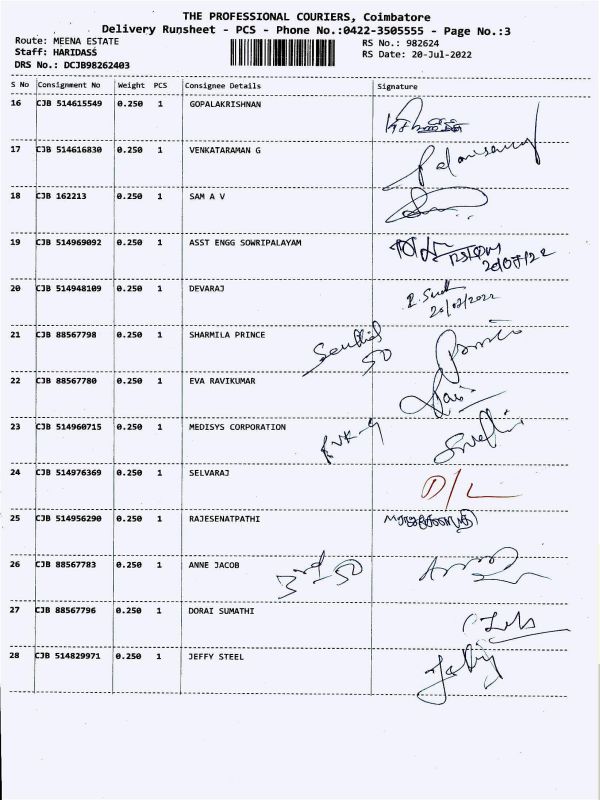 THE PROFESSIONAL COURIERS, Coimbatore
Delivery Runsheet - PCS - Phone No.:0422-3505555 - Page No.:3
Route: MEENA ESTATE RS No.: 982624
Staff: HARIDASS RS Date: 20-Jul-2022
DRS No.: DCJB98262403
S No Consignment No Weight PCS Consignee Details Signature
16 CJB 514615549 0.250 1 GOPALAKRISHNAN
17 CJB 514616830 0.250 1 VENKATARAMAN G
18 CJB 162213 0.250 1 SAM A V
19 CJB 514969092 0.250 1 ASST ENGG SOWRIPALAYAM
20/07/22
20 CJB 514948109 0.250 1 DEVARAJ
20/07/2022
21 CJB 88567798 0.250 1 SHARMILA PRINCE
50
22 CJB 88567780 0.250 1 EVA RAVIKUMAR
23 CJB 514960715 0.250 1 MEDISYS CORPORATION
24 CJB 514976369 0.250 1 SELVARAJ D/L
25 CJB 514956290 0.250 1 RAJESENATPATHI
26 CJB 88567783 0.250 1 ANNE JACOB 3rd 50
27 CJB 88567796 0.250 1 DORAI SUMATHI
28 CJB 514829971 0.250 1 JEFFY STEEL